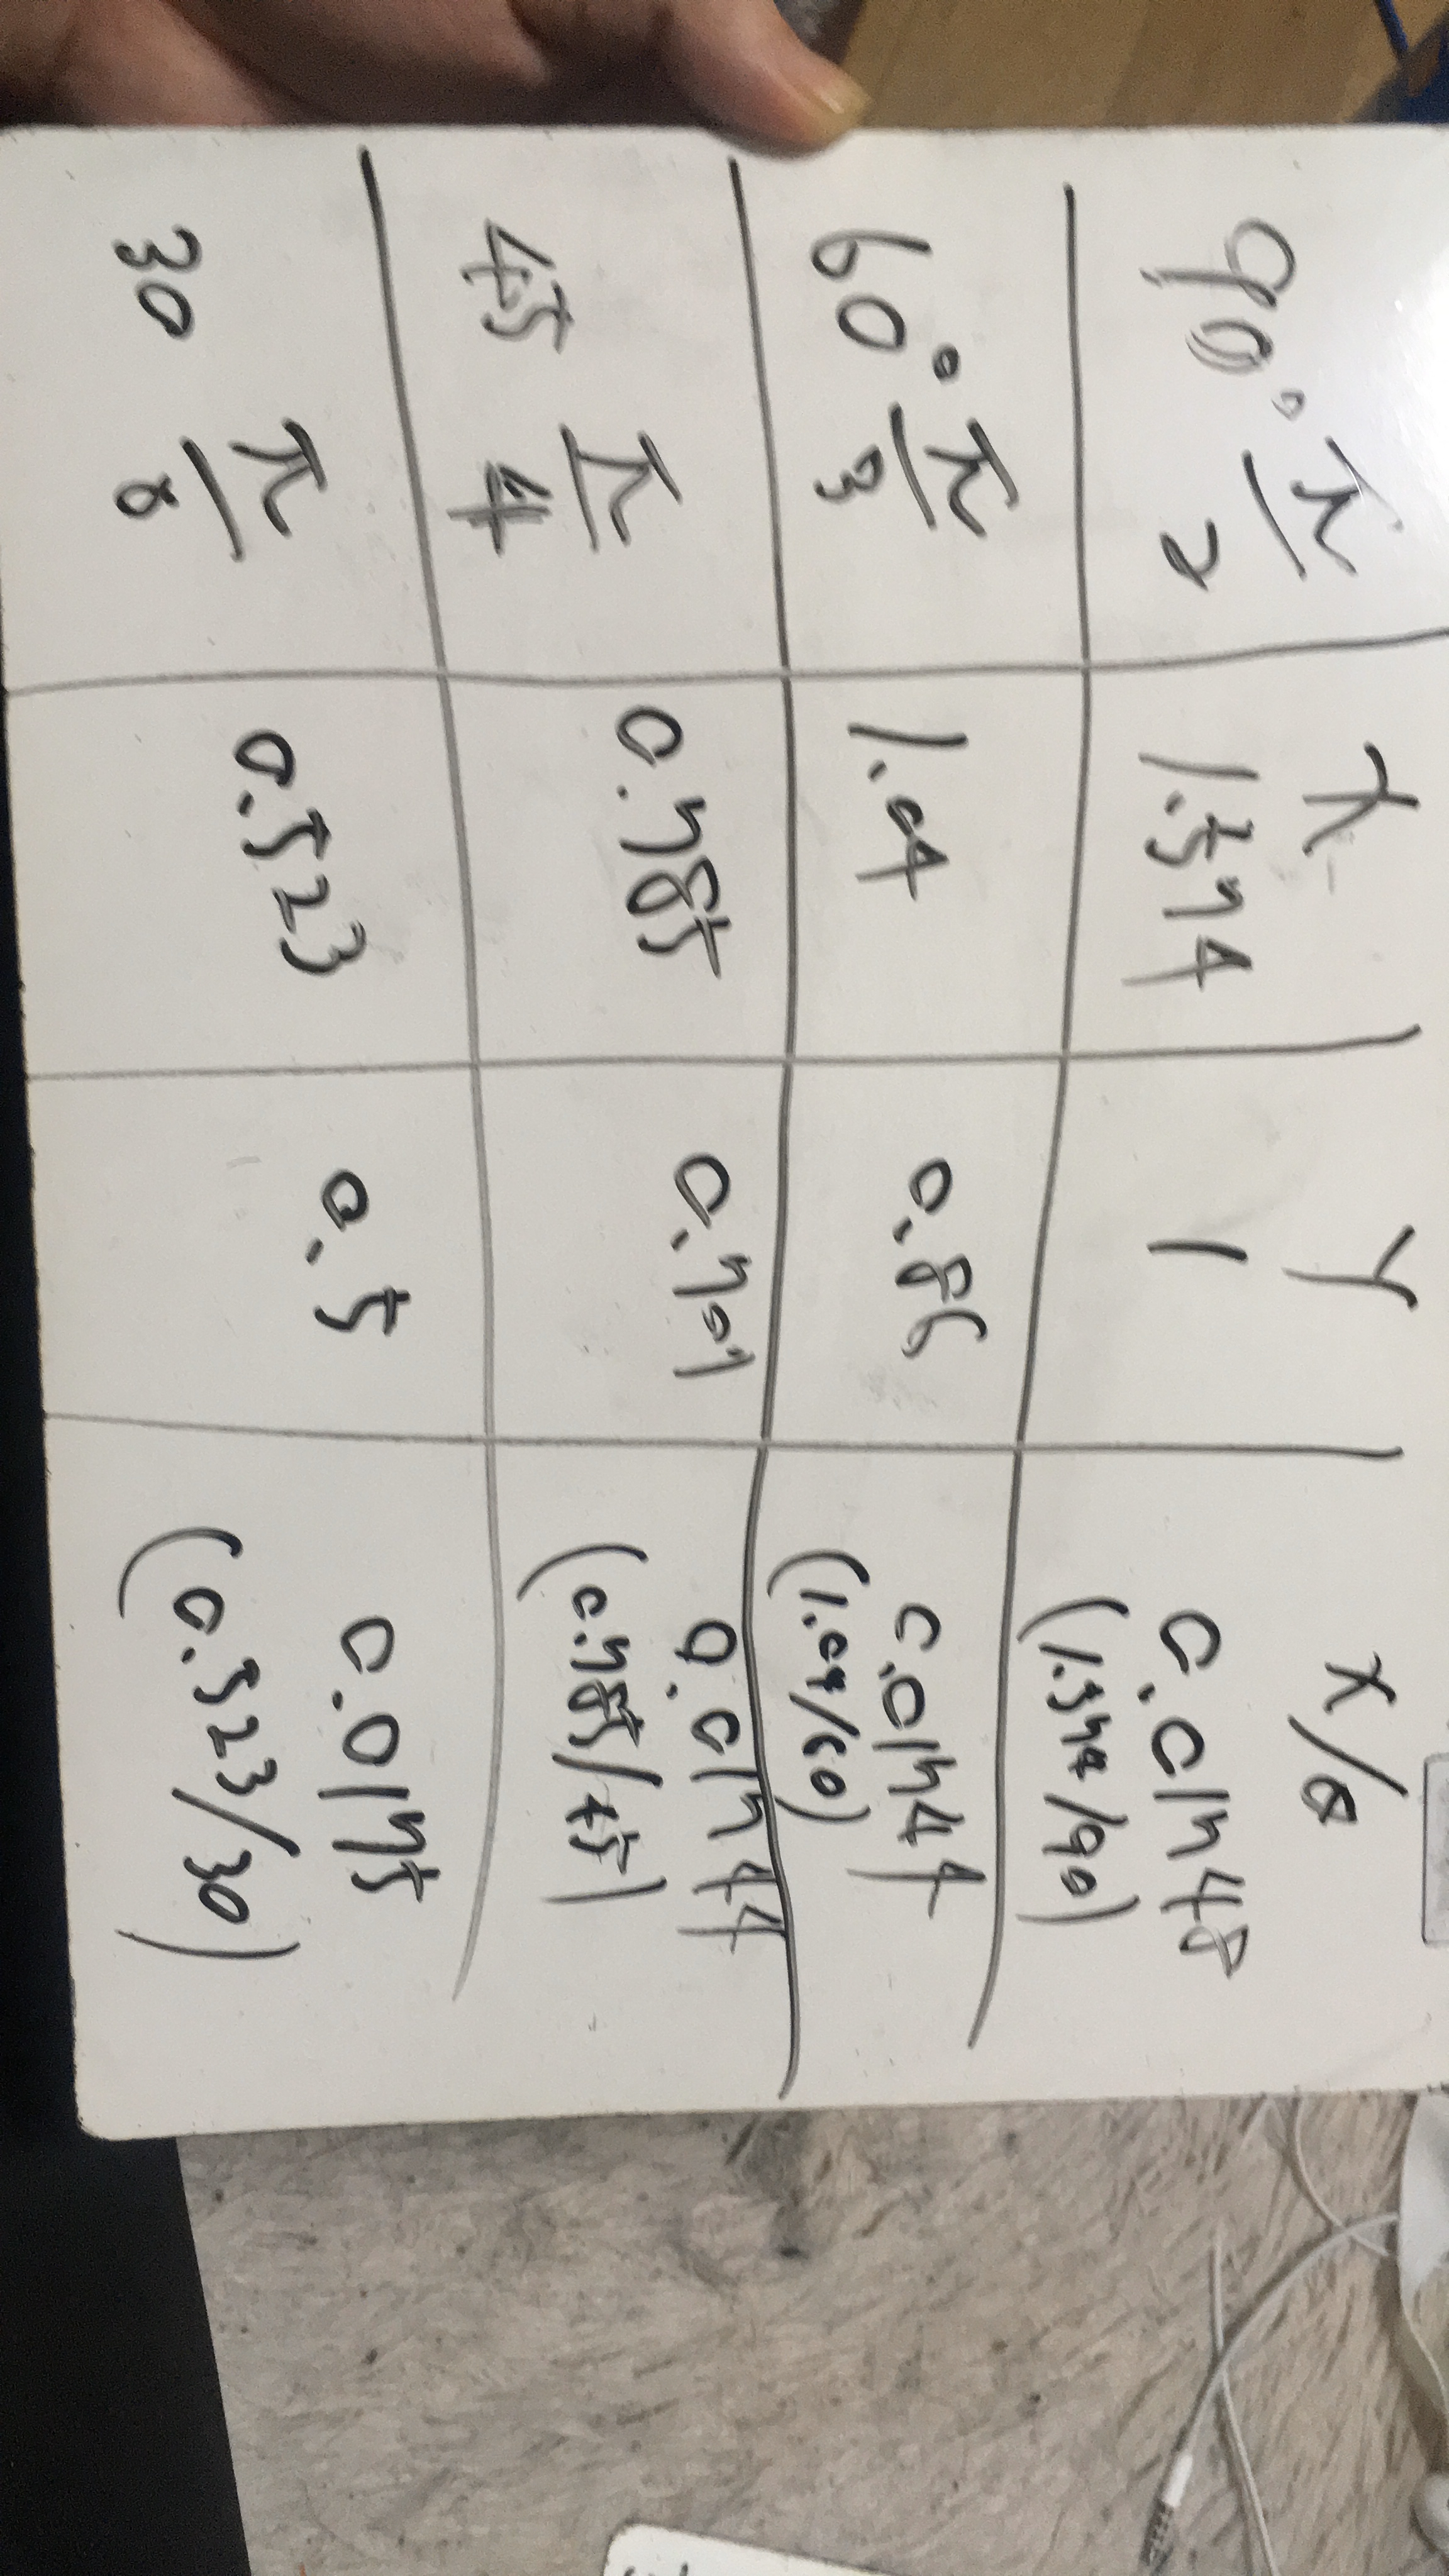 x Y x/θ
90° π/2 1.574 1 0.01748
(1.574/90)
60° π/3 1.04 0.86 0.01744
(1.04/60)
45 π/4 0.785 0.707 0.01744
(0.785/45)
30 π/8 0.523 0.5 0.0175
(0.523/30)